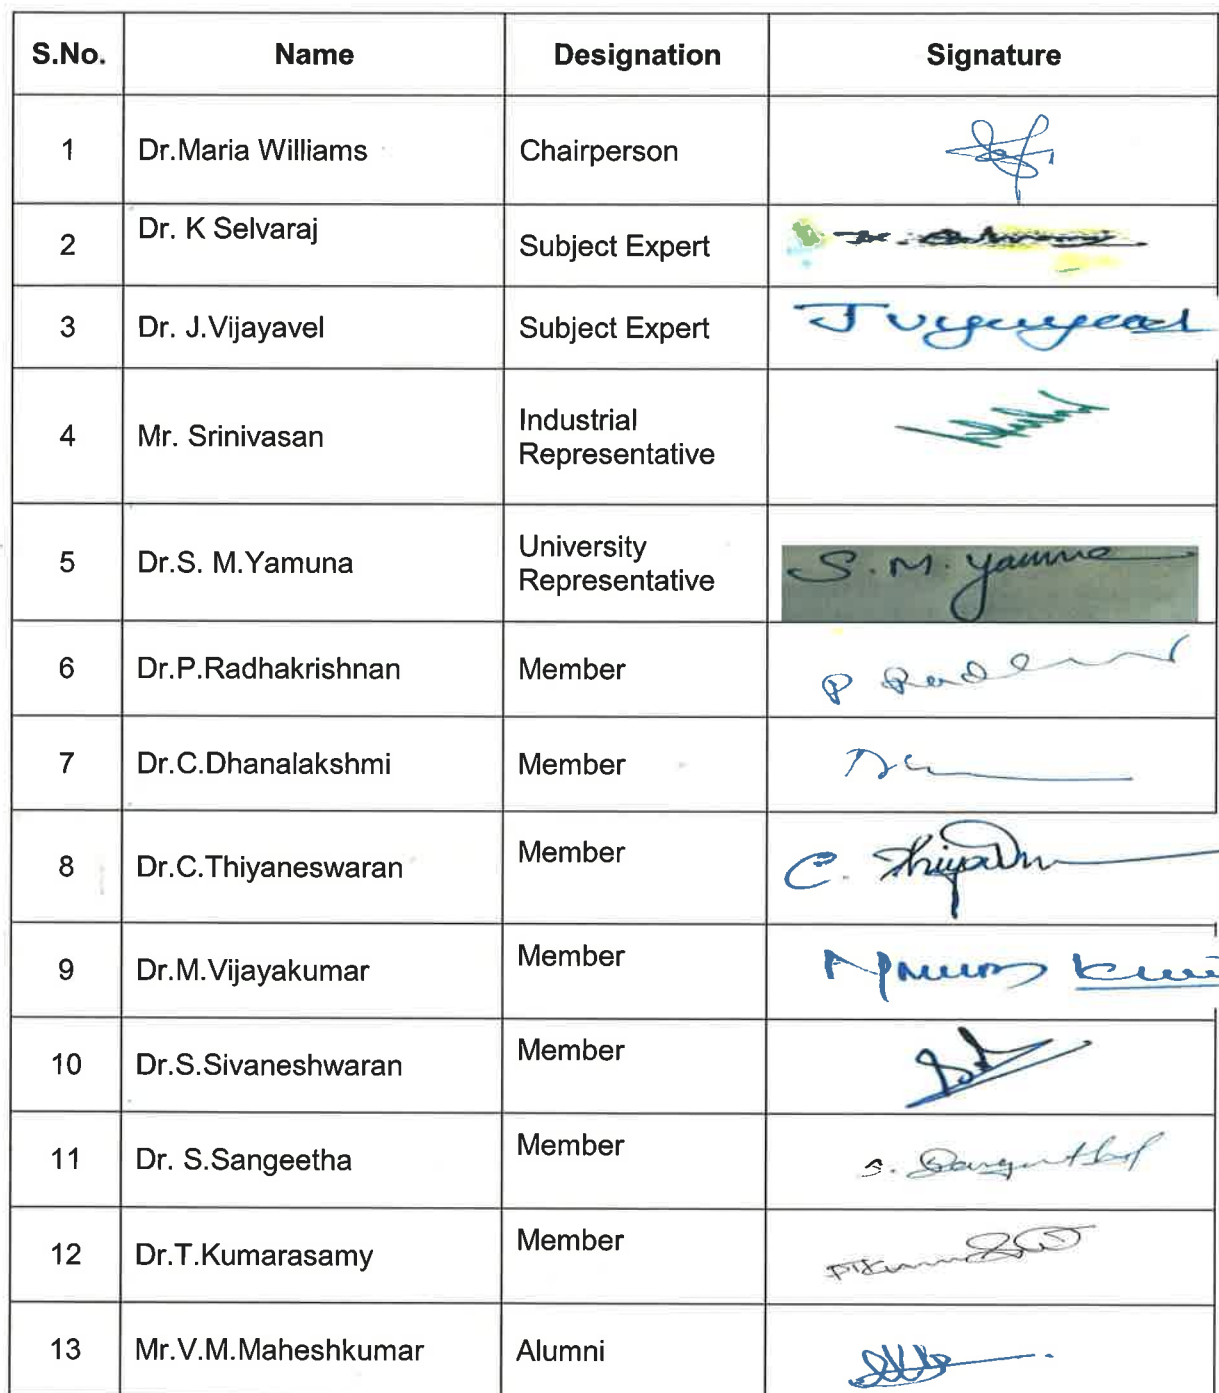 S.No. Name Designation Signature
1 Dr.Maria Williams Chairperson
2 Dr. K Selvaraj Subject Expert
3 Dr. J.Vijayavel Subject Expert J Vijayavel
4 Mr. Srinivasan Industrial
Representative
5 Dr.S. M.Yamuna University
Representative S. M. Yamuna
6 Dr.P.Radhakrishnan Member P Radh
7 Dr.C.Dhanalakshmi Member
8 Dr.C.Thiyaneswaran Member C. Thiya
9 Dr.M.Vijayakumar Member
10 Dr.S.Sivaneshwaran Member
11 Dr. S.Sangeetha Member S. Sangeetha
12 Dr.T.Kumarasamy Member
13 Mr.V.M.Maheshkumar Alumni